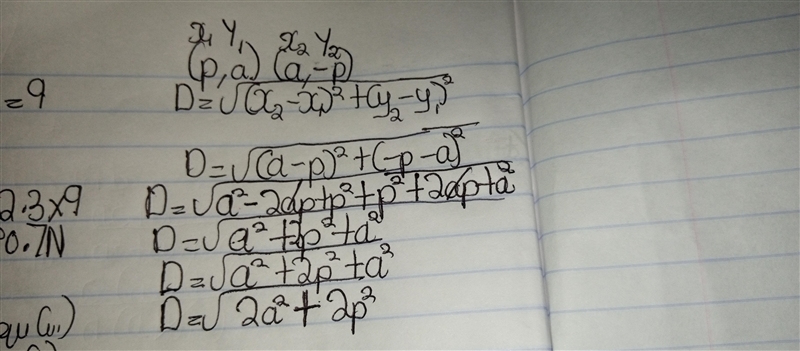 x₁ y₁ x₂ y₂
(p, a) (a, -p)
= 9
D = √(x₂ - x₁)² + (y₂ - y₁)²
D = √(a - p)² + (-p - a)²
2.3 x 9
D = √a² - 2ap + p² + p² + 2ap + a²
0.7N
D = √a² + 2p² + a²
D = √a² + 2p² + a²
D = √2a² + 2p²